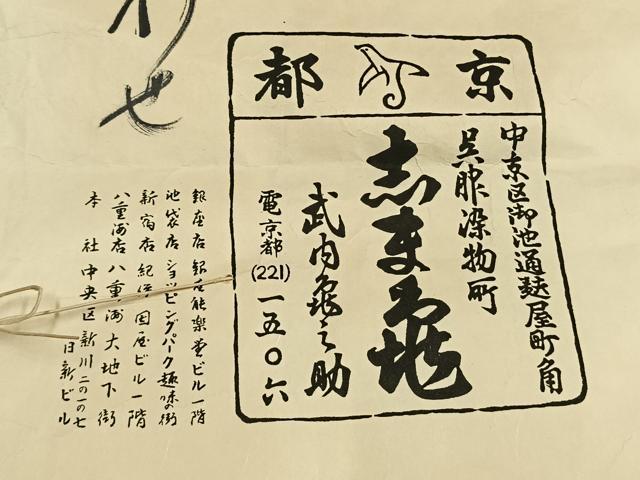 京都
中京区御池通麩屋町角
呉服染物所
志ま亀
武内亀之助
電京都(221)一五〇六
銀座店 銀座能楽堂ビル一階
池袋店 ショッピングパーク趣味の街
新宿店 紀伊国屋ビル一階
八重洲店 八重洲大地下街
本社 中央区新川二の一の七
日新ビル
せ